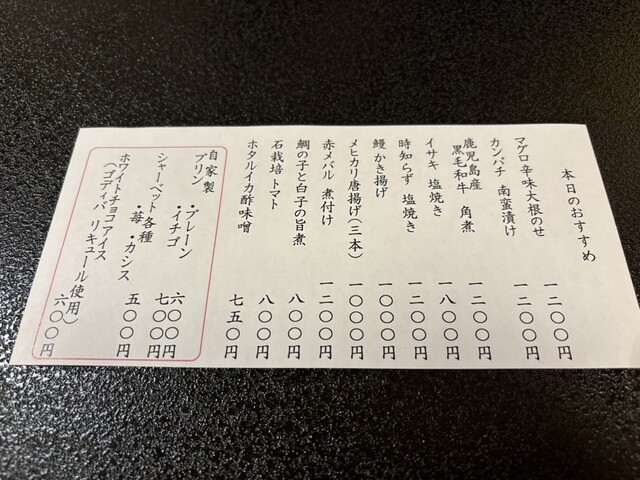 本日のおすすめ
マグロ 辛味大根のせ 一二〇〇円
カンパチ 南蛮漬け 一二〇〇円
鹿児島産
黒毛和牛 角煮 一二〇〇円
イサキ 塩焼き 一八〇〇円
時知らず 塩焼き 一二〇〇円
鰻かき揚げ 一〇〇〇円
メヒカリ唐揚げ(三本) 一〇〇〇円
赤メバル 煮付け 一二〇〇円
鯛の子と白子の旨煮 八〇〇円
石栽培 トマト 八〇〇円
ホタルイカ酢味噌 七五〇円
自家製
プリン ・プレーン 六〇〇円
・イチゴ 七〇〇円
シャーベット各種
・苺 ・カシス 五〇〇円
ホワイトチョコアイス
(ゴディバ リキュール使用) 六〇〇円